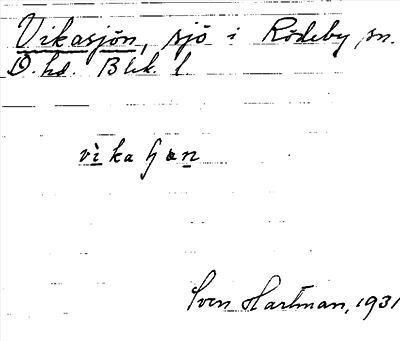 Vikasjön, sjö i Rödeby sn.
Ö. hd. Blek. l.
vìkaɧən
Sven Hartman, 1931